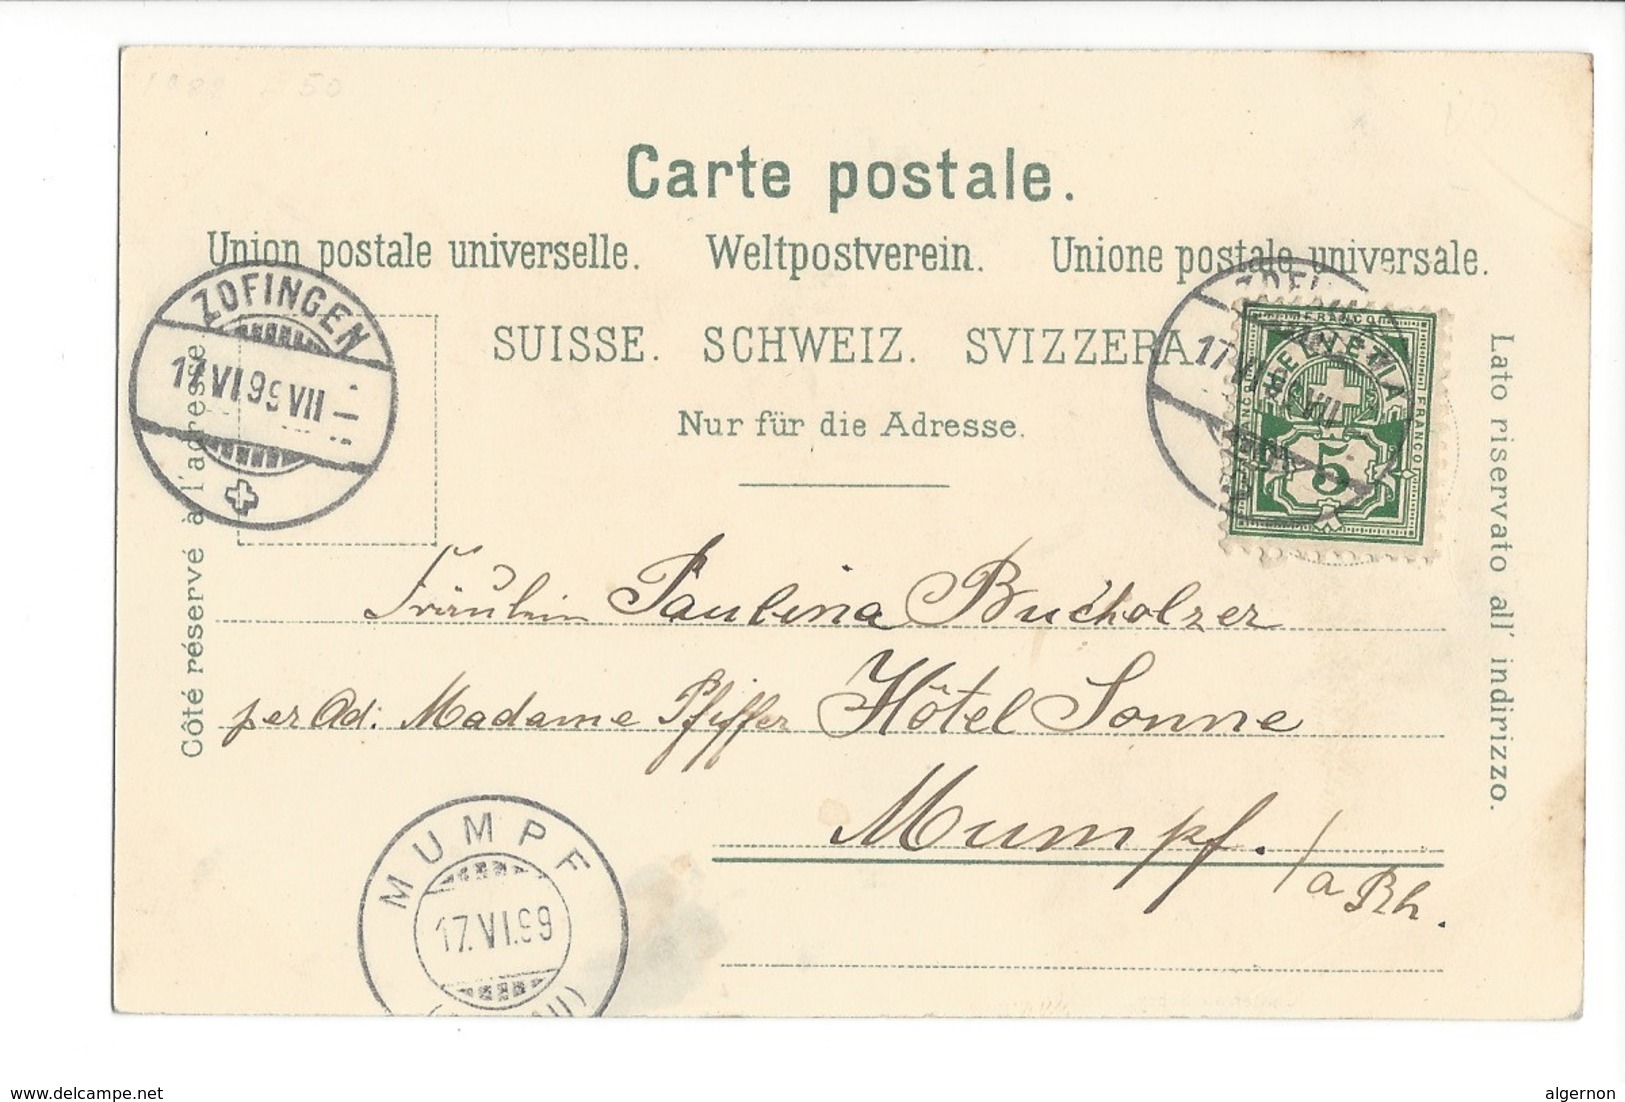 Carte postale.
Union postale universelle. Weltpostverein. Unione postale universale.
SUISSE. SCHWEIZ. SVIZZERA.
Nur für die Adresse.
Côté réservé à l'adresse.
Lato riservato all' indirizzo.
ZOFINGEN
17.VI.99 VII
17.VI.
FRANCO
HELVETIA
FRANCO
5
Fräulein Paulina Bucholzer
per Ad: Madame Pfiffer Hôtel Sonne
Mumpf.
/a Rh.
MUMPF
17.VI.99
delcampe.net
algernon